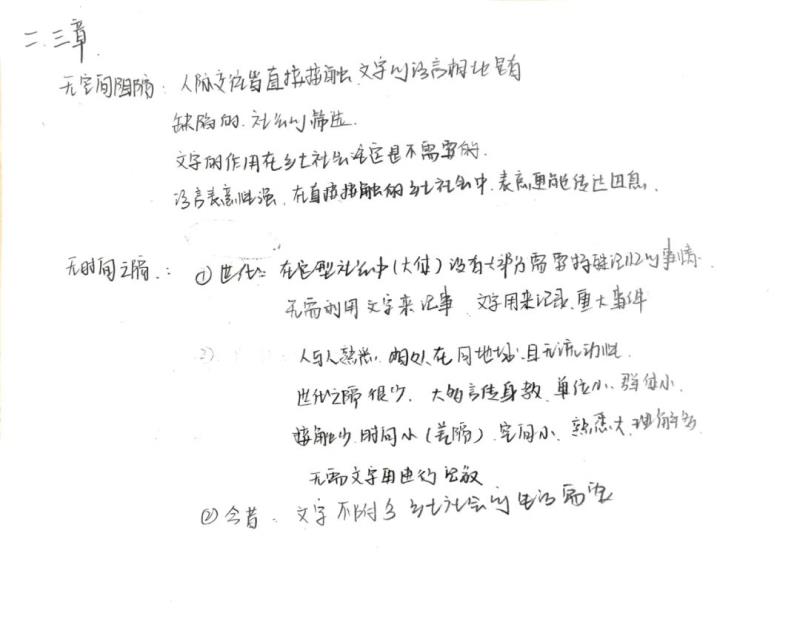 二.三章.
无空间阻隔: 人际交往皆直接接触.文字的语言相比是有
缺陷的.社会的筛选.
文字的作用在乡土社会注定是不需要的.
语言表意性强.在直接接触的乡土社会中.表意更能传达回息.
无时间之隔.: ①世代: 在定型社会中(大体)没有大部分需要特殊记忆的事情.
无需利用文字来记事 文字用来记录.重大事件
2) 人与人熟悉.相似.在同地域.且无流动性.
世代之隔很少. 大的言传身教.单位小.群体小.
接触少.时间小(差隔).空间小.熟悉大.理解多
无需文字用进行
②今昔. 文字不附乡土社会的生活需求